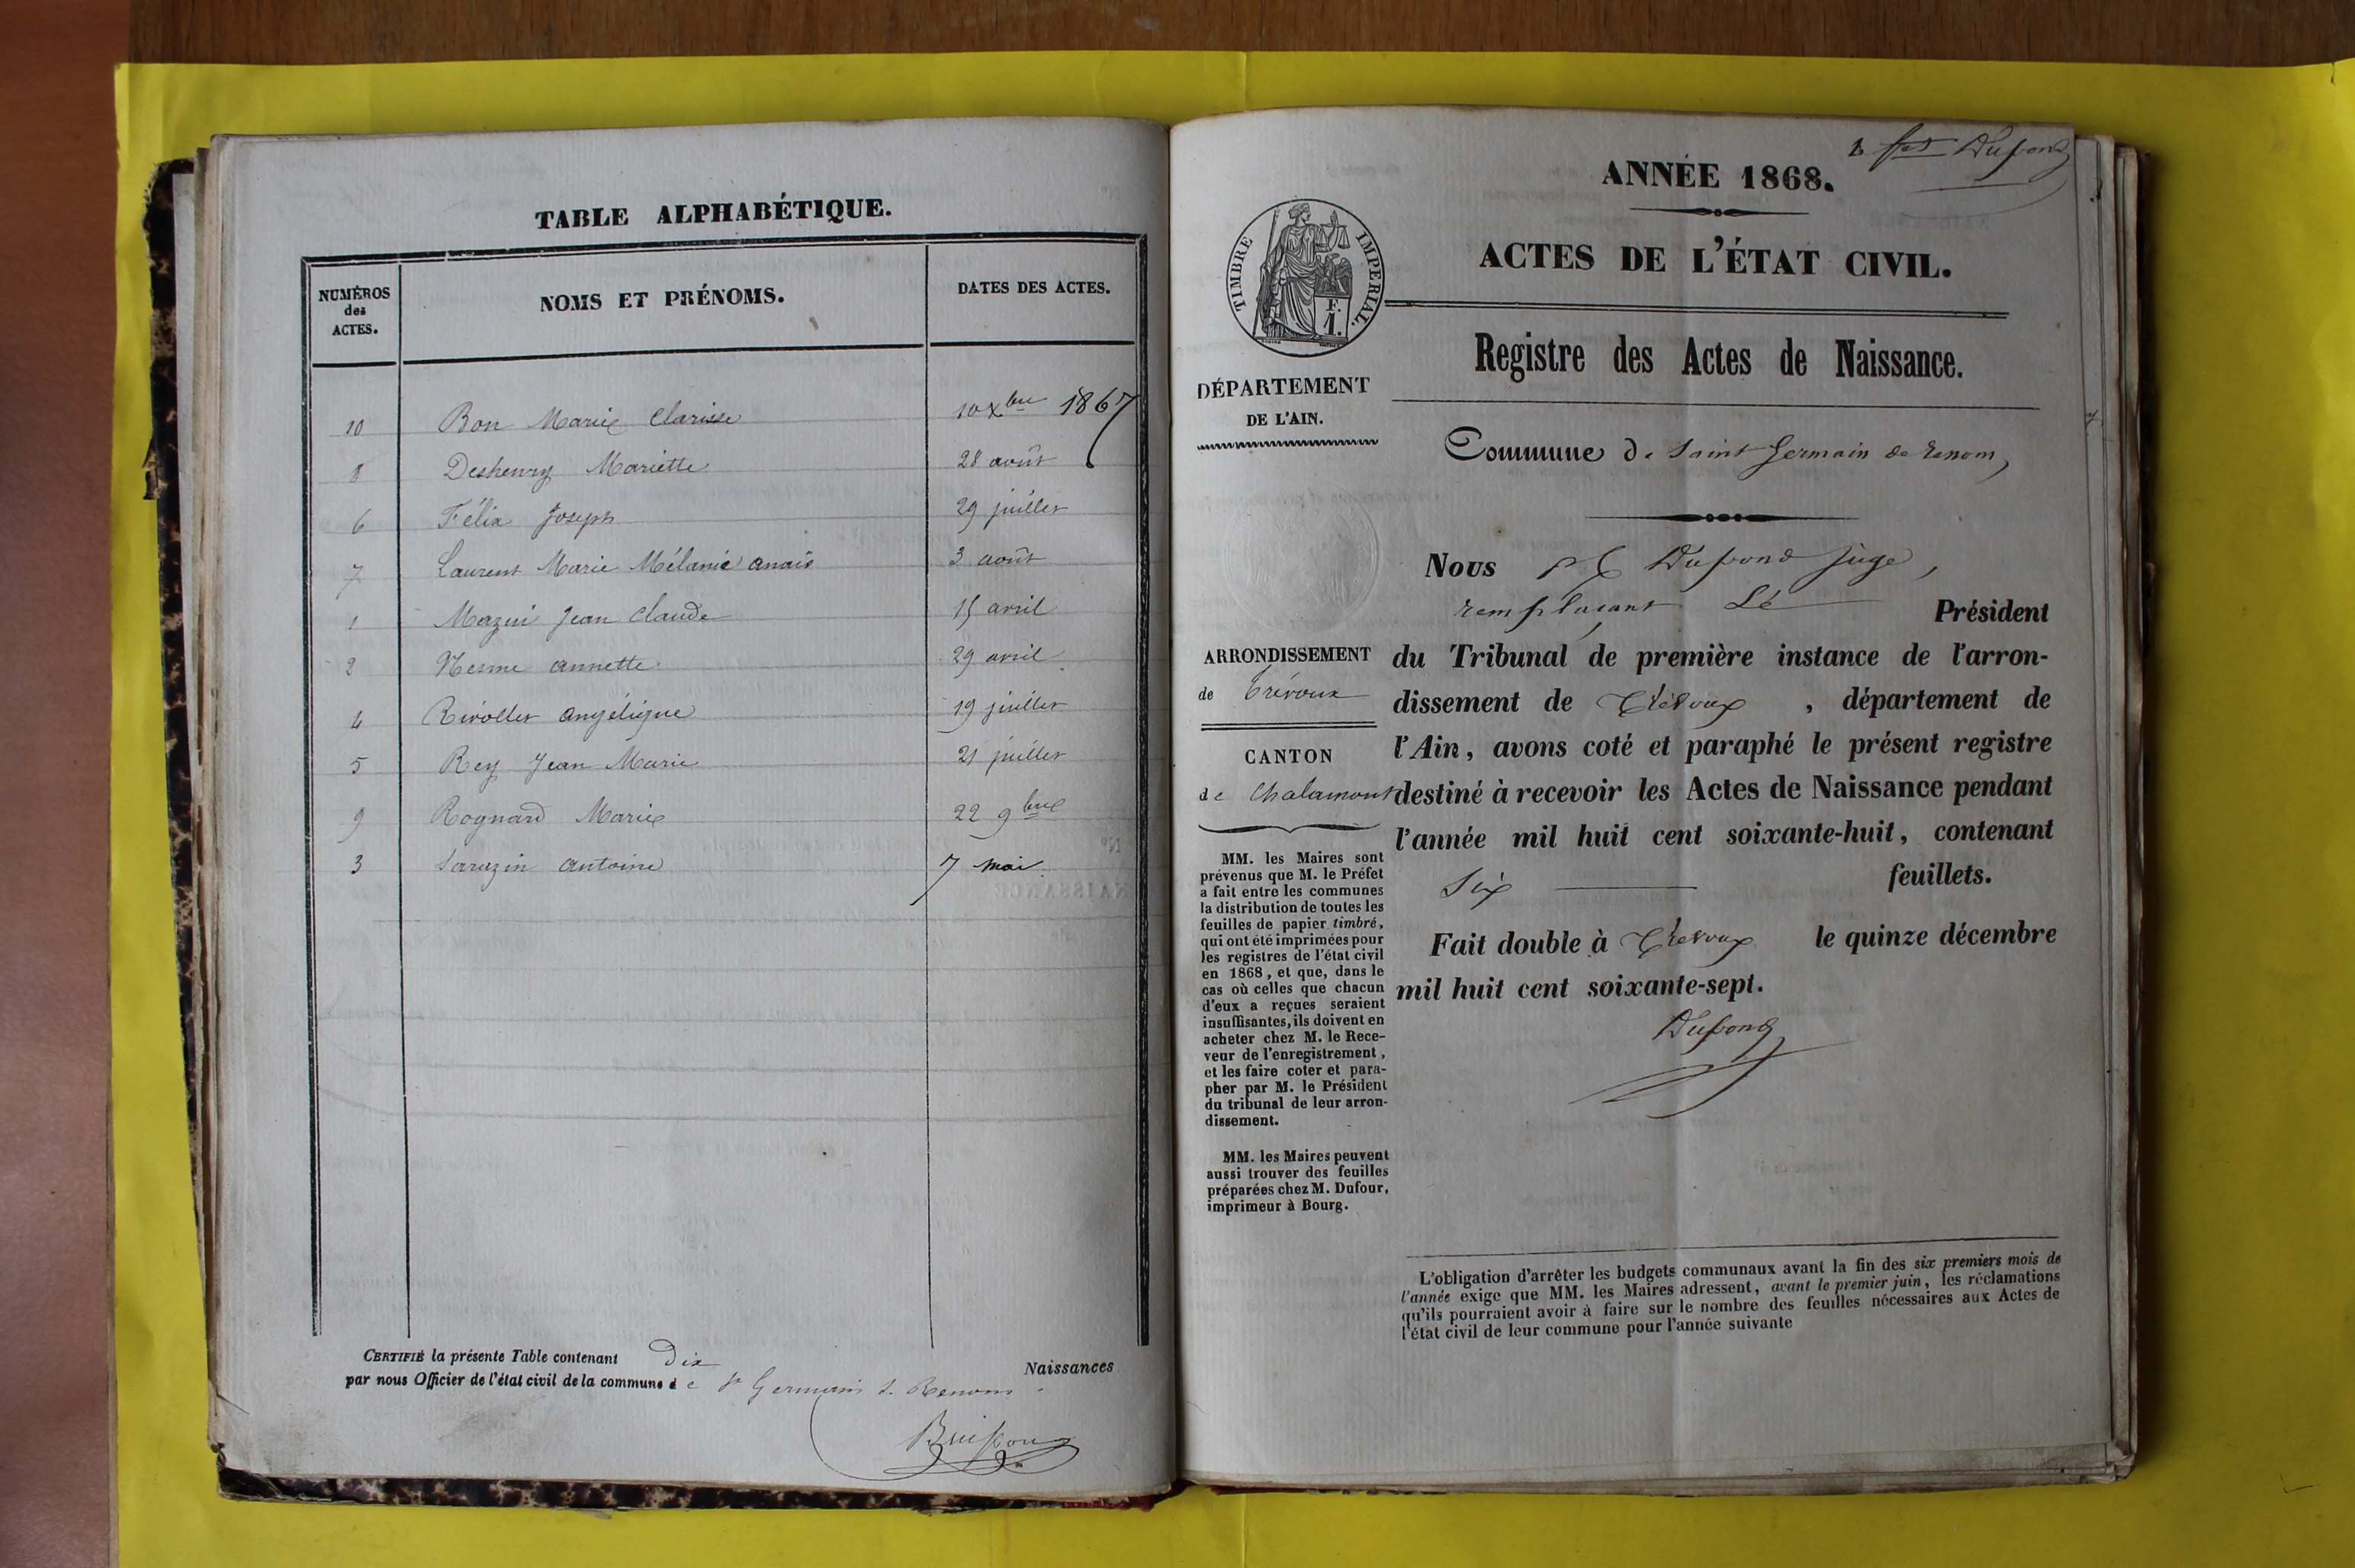 TABLE ALPHABÉTIQUE.
NUMÉROS des ACTES.
NOMS ET PRÉNOMS.
DATES DES ACTES.
10 Bon Marie Clarisse 10 Xbre 1867
8 Deshenry Mariette 28 août
6 Félix Joseph 29 juillet
7 Laurent Marie Mélanie anaïs 3 août
1 Mazui Jean Claude 15 avril
2 Nesme annette 29 avril
4 Rivollet angélique 19 juillet
5 Rey Jean Marie 21 juillet
9 Rognard Marie 22 9bre
3 Saruzin antoine 7 mai
CERTIFIÉ la présente Table contenant Dix Naissances
par nous Officier de l'état civil de la commune de St Germain d. Renom.
Buisson
Dupond
ANNÉE 1868.
ACTES DE L'ÉTAT CIVIL.
TIMBRE IMPERIAL.
F.
1.
Registre des Actes de Naissance.
DÉPARTEMENT
DE L'AIN.
Commune de Saint Germain de Renom,
Nous Dupond juge,
remplaçant Le Président
ARRONDISSEMENT
de Trévoux
CANTON
de Chalamont
du Tribunal de première instance de l'arron-
dissement de Trévoux, département de
l'Ain, avons coté et paraphé le présent registre
destiné à recevoir les Actes de Naissance pendant
l'année mil huit cent soixante-huit, contenant
Six feuillets.
Fait double à Trévoux le quinze décembre
mil huit cent soixante-sept.
Dupond
MM. les Maires sont
prévenus que M. le Préfet
a fait entre les communes
la distribution de toutes les
feuilles de papier timbré,
qui ont été imprimées pour
les registres de l'état civil
en 1868, et que, dans le
cas où celles que chacun
d'eux a reçues seraient
insuffisantes, ils doivent en
acheter chez M. le Rece-
veur de l'enregistrement,
et les faire coter et para-
pher par M. le Président
du tribunal de leur arron-
dissement.
MM. les Maires peuvent
aussi trouver des feuilles
préparées chez M. Dufour,
imprimeur à Bourg.
L'obligation d'arrêter les budgets communaux avant la fin des six premiers mois de
l'année exige que MM. les Maires adressent, avant le premier juin, les réclamations
qu'ils pourraient avoir à faire sur le nombre des feuilles nécessaires aux Actes de
l'état civil de leur commune pour l'année suivante